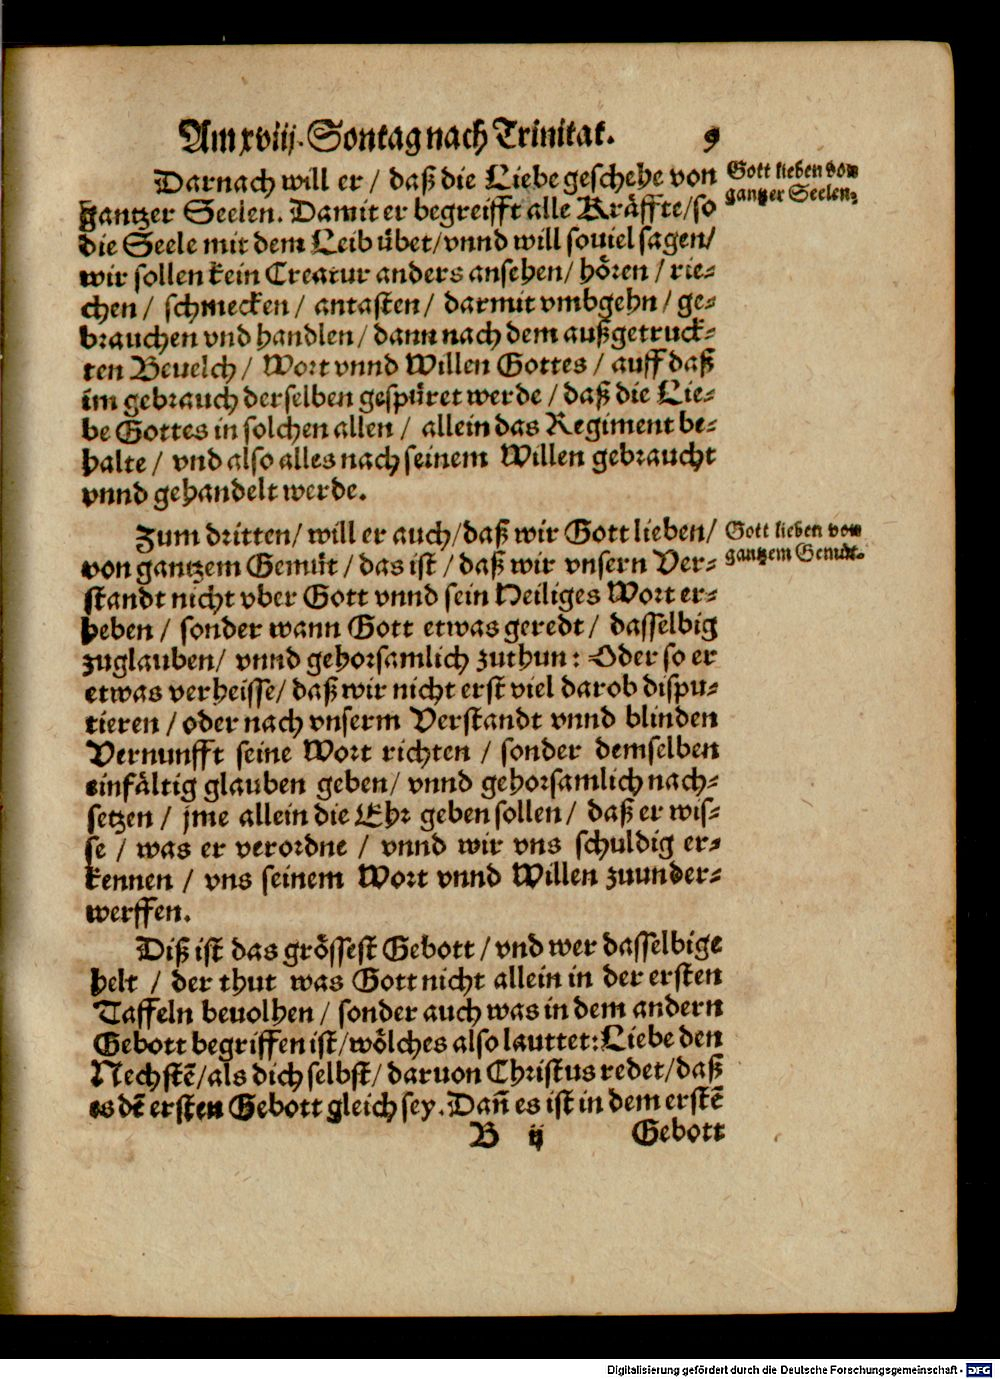 Am xviij. Sontag nach Trinitat. 9
Darnach will er / daß die Liebe geschehe von
Gott lieben von
gantzer Seelen.
gantzer Seelen. Damit er begreifft alle Kräffte/so
die Seele mit dem Leib übet/vnnd will souiel sagen/
wir sollen kein Creatur anders ansehen/ hören / rie-
chen / schmecken / antasten / darmit vmbgehn / ge-
brauchen vnd handlen / dann nach dem außgetruck-
ten Beuelch / Wort vnnd Willen Gottes / auff daß
im gebrauch derselben gespüret werde / daß die Lie-
be Gottes in solchen allen / allein das Regiment be-
halte / vnd also alles nach seinem Willen gebraucht
vnnd gehandelt werde.
Zum dritten/ will er auch/daß wir Gott lieben/
Gott lieben von
gantzem Gemüt.
von gantzem Gemüt / das ist / daß wir vnsern Ver-
standt nicht vber Gott vnnd sein Heiliges Wort er-
heben / sonder wann Gott etwas geredt / dasselbig
zuglauben/ vnnd gehorsamlich zuthun: Oder so er
etwas verheisse/ daß wir nicht erst viel darob dispu-
tieren / oder nach vnserm Verstandt vnnd blinden
Vernunfft seine Wort richten / sonder demselben
einfältig glauben geben/ vnnd gehorsamlich nach-
setzen / jme allein die Ehr geben sollen / daß er wis-
se / was er verordne / vnnd wir vns schuldig er-
kennen / vns seinem Wort vnnd Willen zuunder-
werffen.
Diß ist das grössest Gebott / vnd wer dasselbige
helt / der thut was Gott nicht allein in der ersten
Taffeln beuolhen / sonder auch was in dem andern
Gebott begriffen ist/wölches also lauttet: Liebe den
Nechstē/als dich selbst/ daruon Christus redet/daß
es dē ersten Gebott gleich sey. Dañ es ist in dem erstē
B ij Gebott
Digitalisierung gefördert durch die Deutsche Forschungsgemeinschaft - DFG